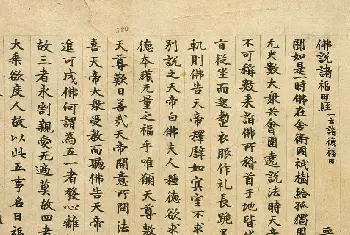 佛說諸福田經 一名諸德福田
聞如是一時佛在舍衛國祇樹給孤獨園
无央數大衆共會圍遶說法時天帝
不可稱數來詣佛所稽首于地皆
從坐而起整衣服作礼長跪
軌則佛告天帝釋譬如冥室不求
別說之天帝白佛夫人種德欲求
德本獲无量之福乎唯願天尊敷
天尊歎曰善哉天帝開意所問法
喜天帝大衆受教而聽佛告天帝
進可成佛何謂為五一者發心離
故三者永割親愛无適莫故四者
大乘欲度人故以此五事名曰福